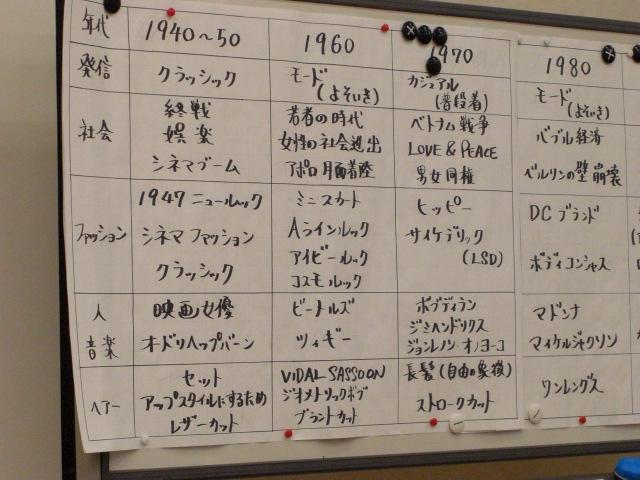 年代 1940～50 1960 1970 1980
発信 クラッシック モード(よそいき) カジュアル(普段着) モード(よそいき)
社会 終戦 若者の時代 ベトナム戦争 バブル経済
娯楽 女性の社会進出 LOVE & PEACE ベルリンの壁崩壊
シネマブーム アポロ月面着陸 男女同権
ファッション 1947 ニュールック ミニスカート ヒッピー DCブランド
シネマファッション Aラインルック サイケデリック(LSD) ボディコンシャス
クラッシック アイビールック
コスモルック
人 映画女優 ビートルズ ボブディラン マドンナ
音楽 オードリヘップバーン ツィギー ジミヘンドリクス マイケルジャクソン
ジョンレノン オノヨーコ
ヘアー セット VIDAL SASSOON 長髪(自由の象徴) ワンレングス
アップスタイルにするため ジオメトリックボブ ストロークカット
レザーカット ブラントカット